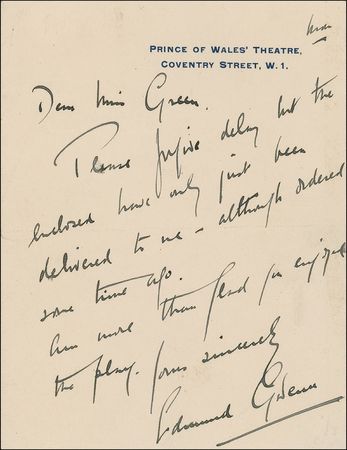 PRINCE OF WALES' THEATRE,
COVENTRY STREET, W. 1.
Dear Miss Green.
Please forgive delay but the
enclosed have only just been
delivered to me – although ordered
some time ago.
Am more than glad you enjoyed
the play. Yours sincerely
Edmund Gwenn